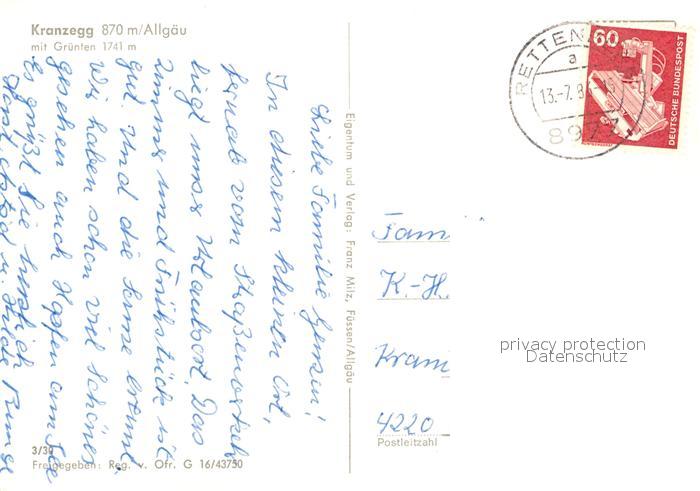 Kranzegg 870 m/Allgäu
mit Grünten 1741 m
Liebe Familie Jensen!
In diesem kleinen Ort,
fernab vom Straßenverkehr
liegt unser Urlaubsort. Das
Zimmer und Frühstück ist
gut. Und die Sonne brennt.
Wir haben schon viel Schönes
gesehen auch Hopfen am See
Es grüßt Sie herzlich
Horst, u. Hilde
3/30
Freigegeben: Reg. v. Ofr. G 16/43750
Eigentum und Verlag: Franz Milz, Füssen/Allgäu
RETTEN
a
13.-7.8
897
60
DEUTSCHE BUNDESPOST
Fam
K.-H.
Kram
4220
Postleitzahl
privacy protection
Datenschutz